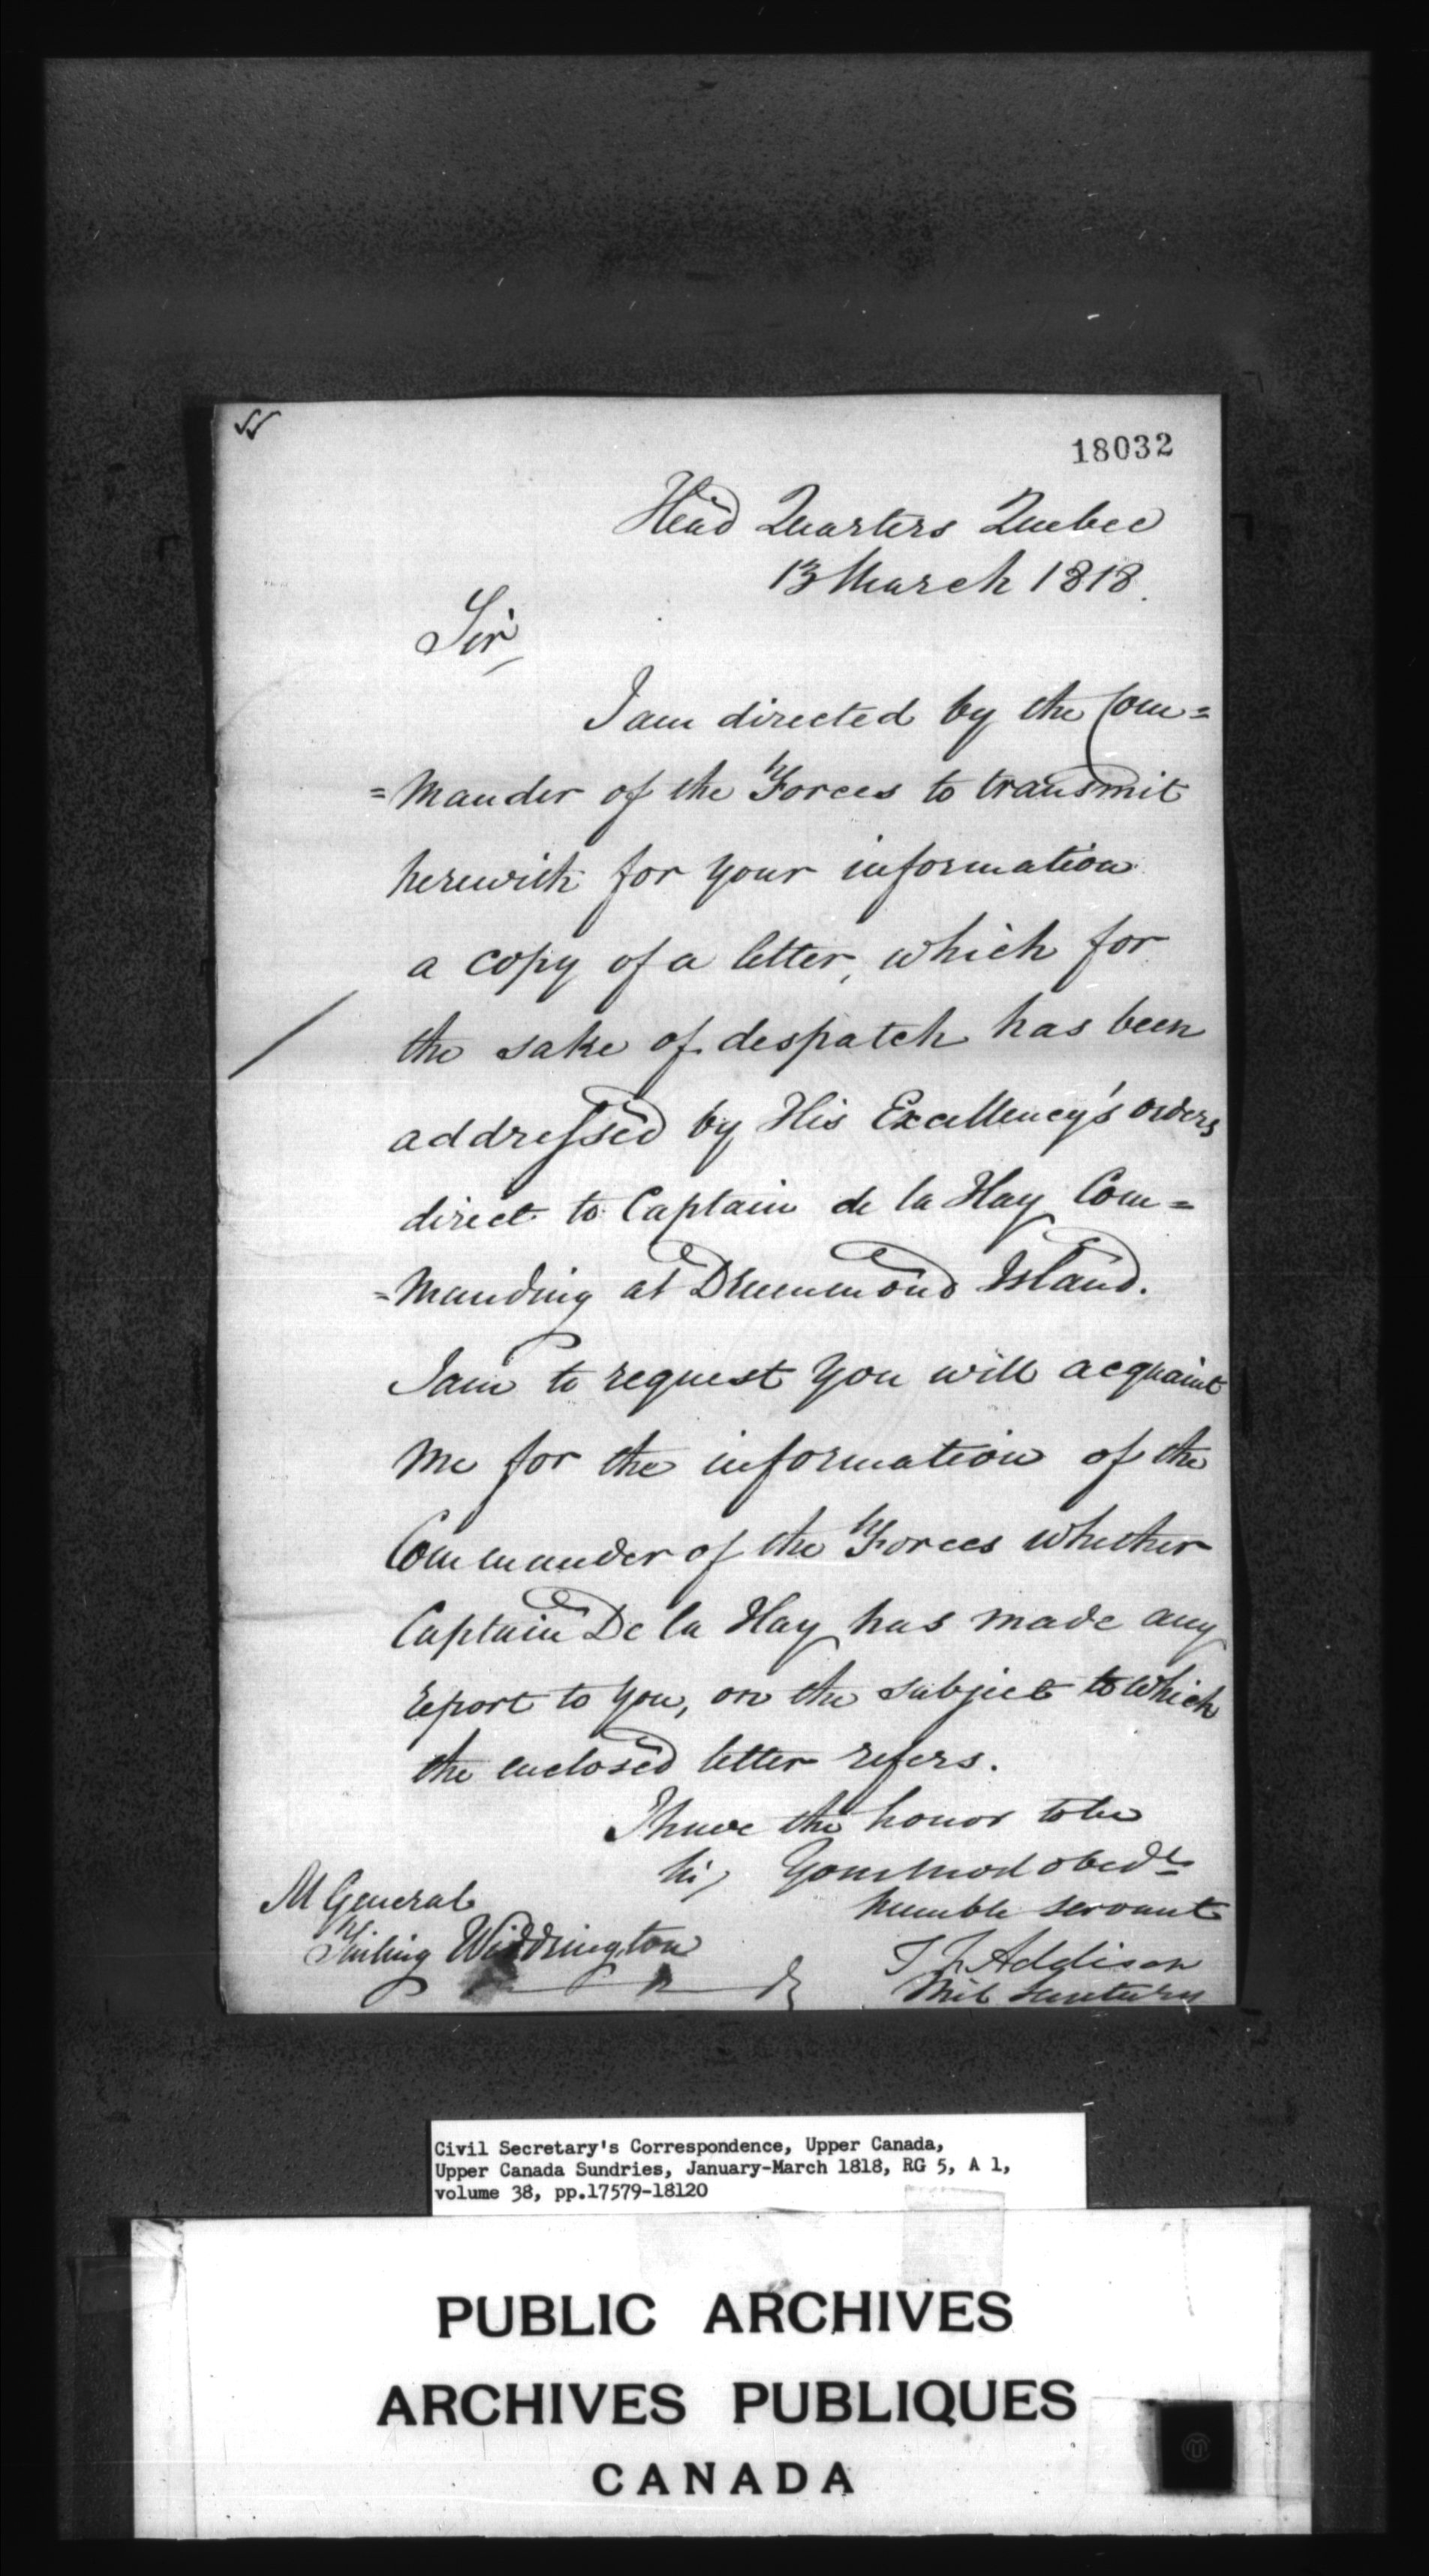 18032
Head Quarters Quebec
13 March 1818.
Sir,
I am directed by the Com=
=mander of the Forces to transmit
herewith for your information
a copy of a letter, which for
the sake of despatch has been
addressed by His Excellency's orders
direct to Captain de la Hay Com=
=manding at Drummond Island.
I am to request you will acquaint
me for the information of the
Commander of the Forces whether
Captain De la Hay has made any
report to you, on the subject to which
the enclosed letter refers.
I have the honor to be
Sir, Your most obedt
humble servant
M General
Widdrington
Addison
Mil Secretary
Civil Secretary's Correspondence, Upper Canada,
Upper Canada Sundries, January-March 1818, RG 5, A 1,
volume 38, pp.17579-18120
PUBLIC ARCHIVES
ARCHIVES PUBLIQUES
CANADA